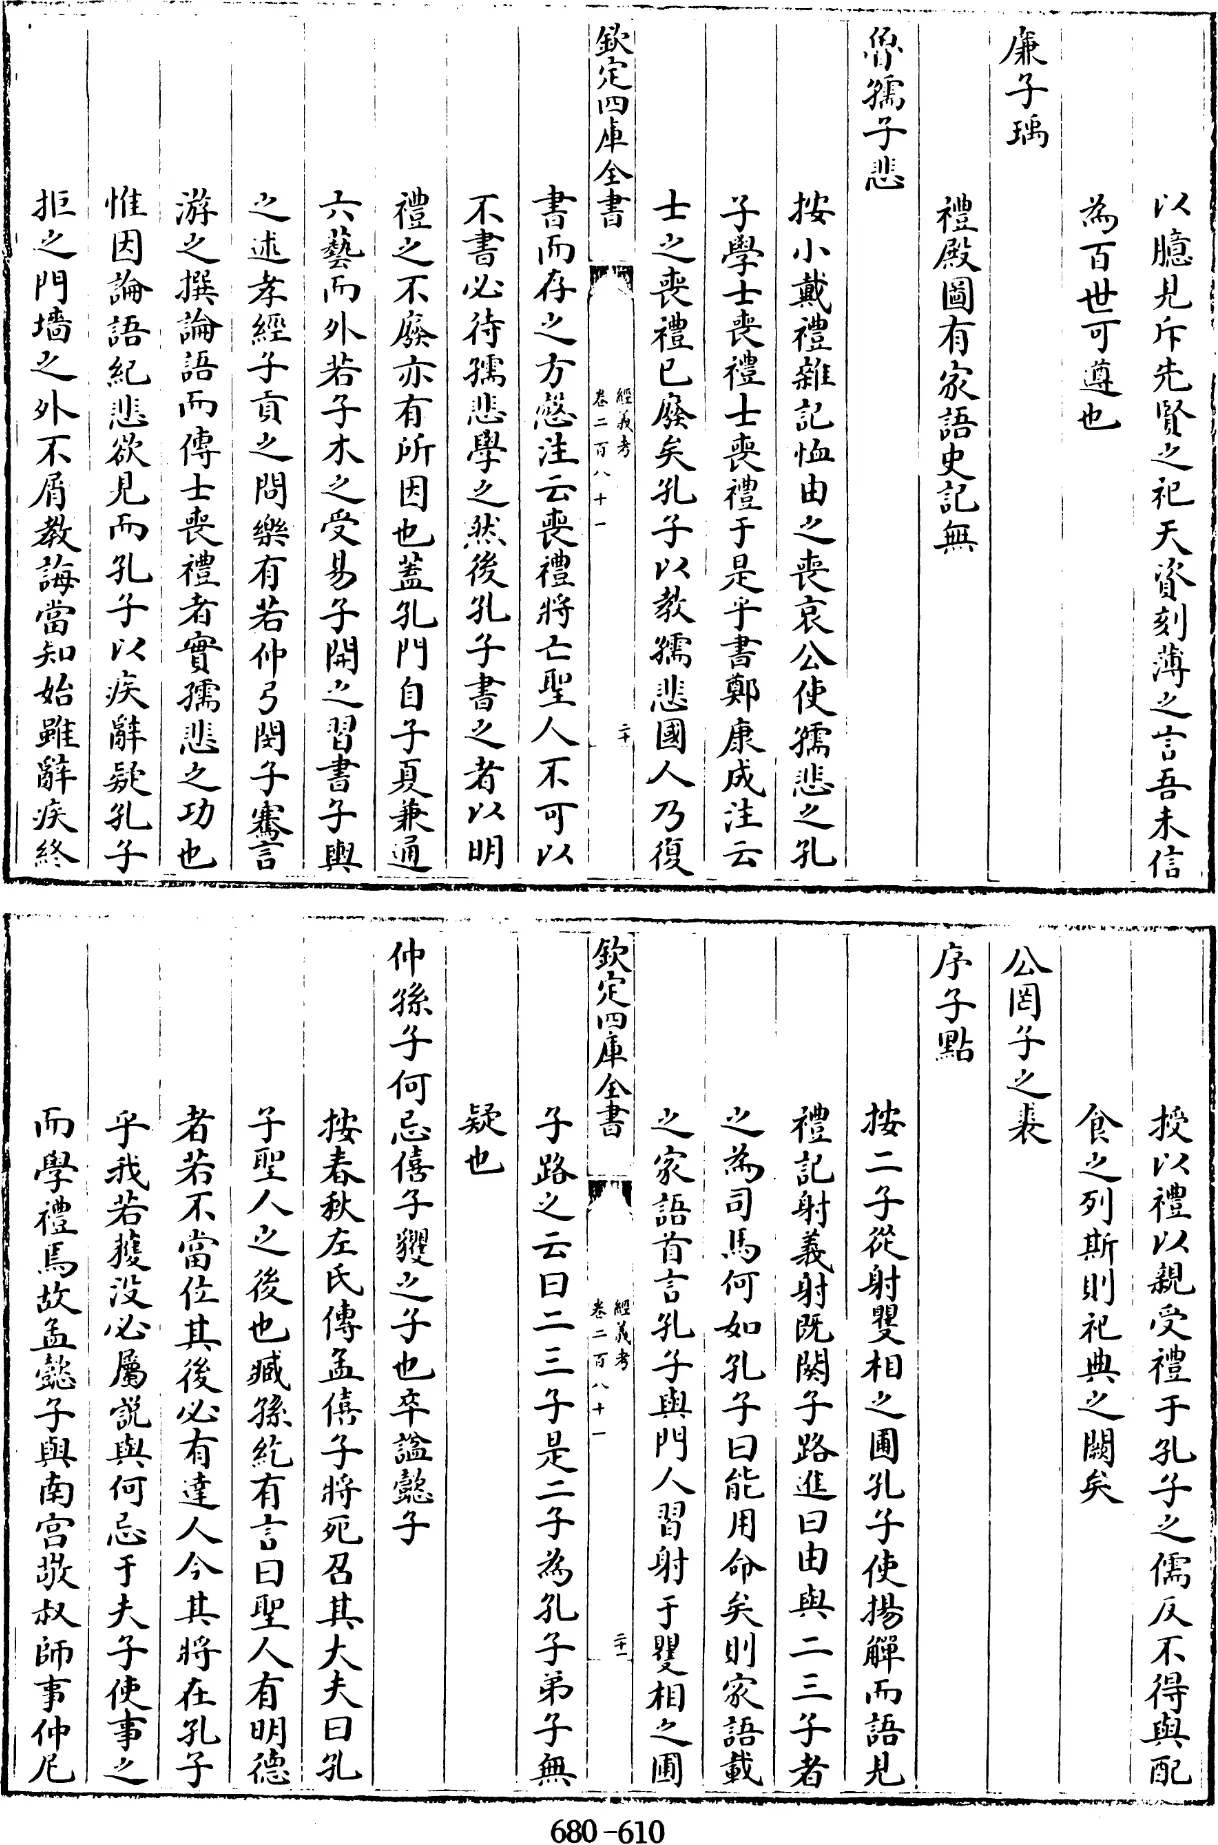 以臆見斥先賢之祀天資刻薄之言吾未信
為百世可遵也
廉子瑀
禮殿圖有家語史記無
魯孺子悲
按小戴禮雜記恤由之喪哀公使孺悲之孔
子學士喪禮士喪禮于是乎書鄭康成注云
士之喪禮已廢矣孔子以教孺悲國人乃復
欽定四庫全書
經義考
卷二百八十一
二十
書而存之方慤注云喪禮將亡聖人不可以
不書必待孺悲學之然後孔子書之者以明
禮之不廢亦有所因也蓋孔門自子夏兼通
六藝而外若子木之受易子開之習書子輿
之述孝經子貢之問樂有若仲弓閔子騫言
游之撰論語而傳士喪禮者實孺悲之功也
惟因論語紀悲欲見而孔子以疾辭疑孔子
拒之門墻之外不屑教誨當知始雖辭疾終
授以禮以親受禮于孔子之儒反不得與配
食之列斯則祀典之闕矣
公罔子之裘
序子點
按二子從射矍相之圃孔子使揚觶而語見
禮記射義射既闋子路進曰由與二三子者
之為司馬何如孔子曰能用命矣則家語載
之家語首言孔子與門人習射于矍相之圃
欽定四庫全書
經義考
卷二百八十一
二十一
子路之云曰二三子是二子為孔子弟子無
疑也
仲孫子何忌僖子貜之子也卒諡懿子
按春秋左氏傳孟僖子將死召其大夫曰孔
子聖人之後也臧孫紇有言曰聖人有明德
者若不當位其後必有達人今其將在孔子
乎我若獲没必屬説與何忌于夫子使事之
而學禮焉故孟懿子與南宮敬叔師事仲尼
680-610